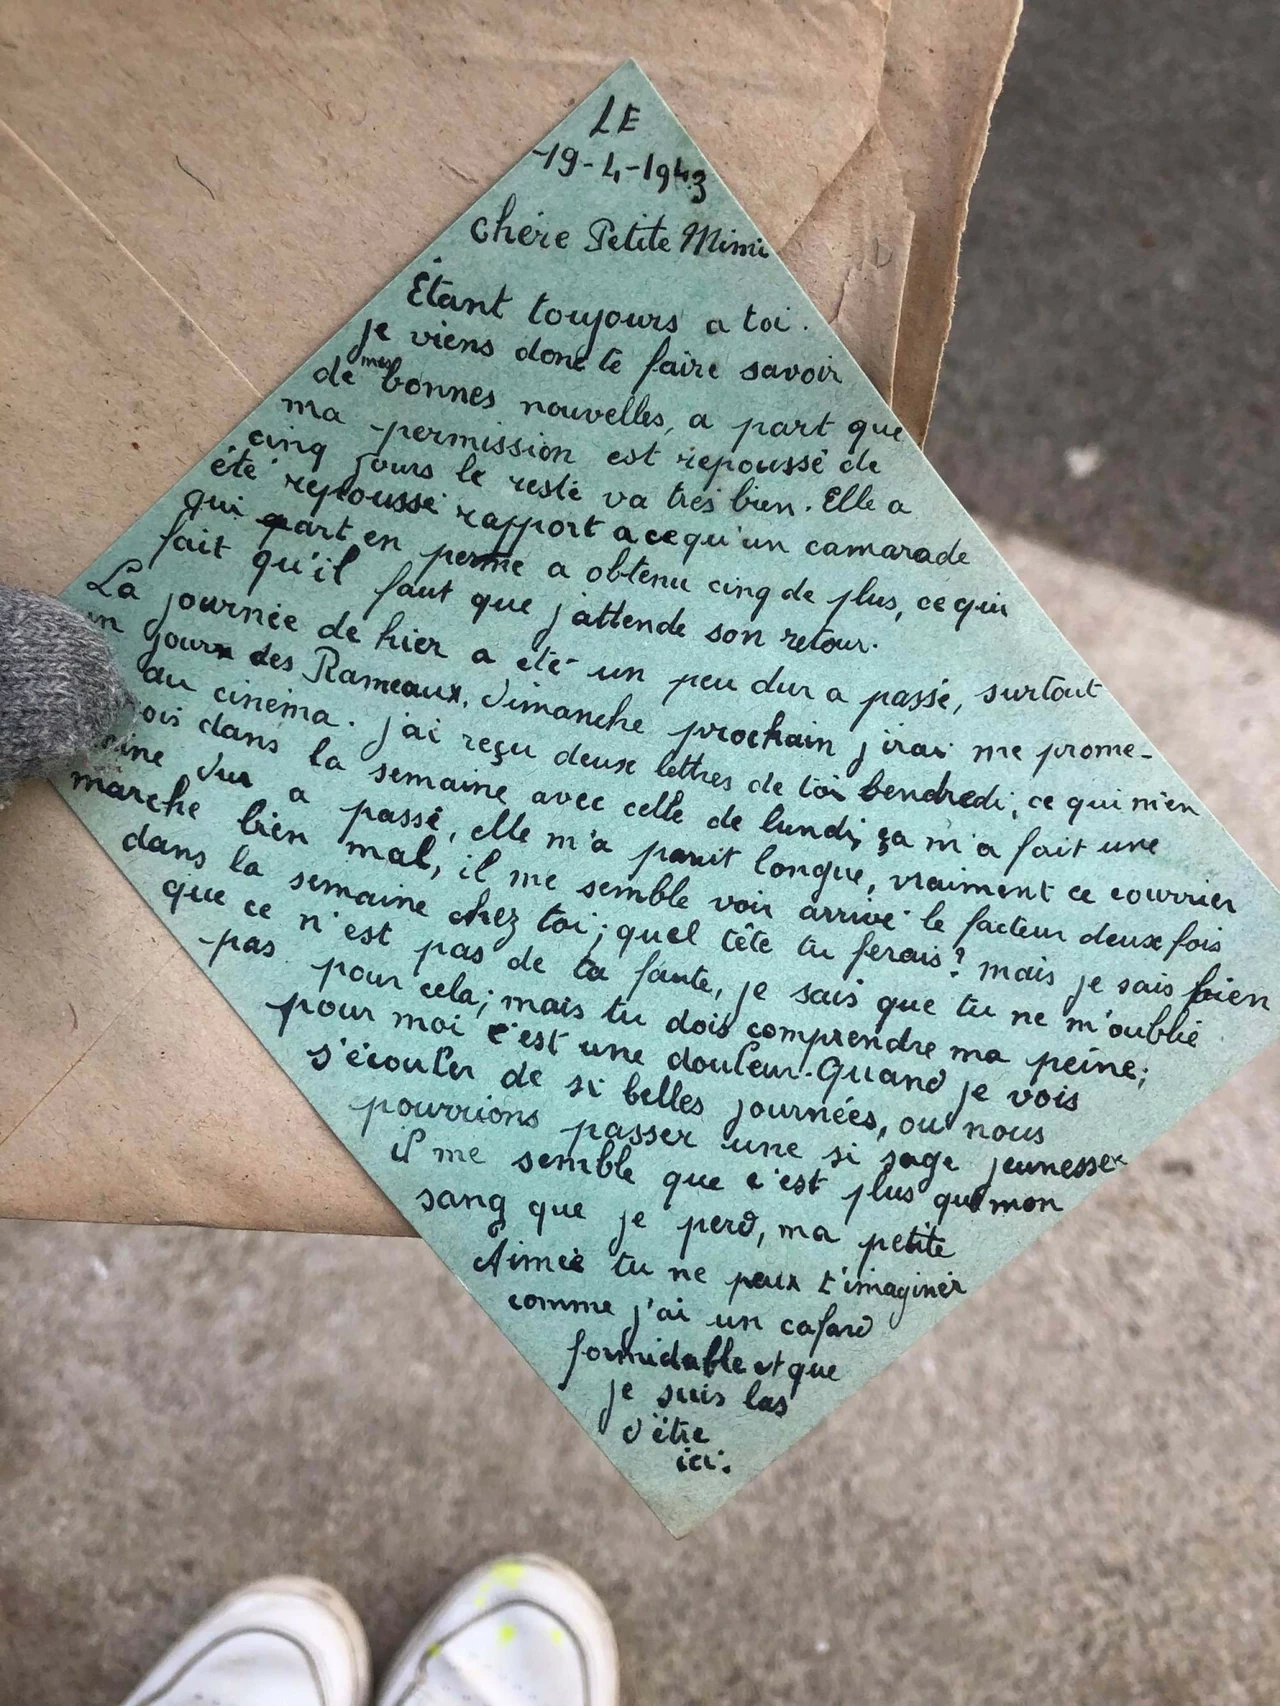 LE
-19-4-1943
Chére Petite Mimi
Étant toujours a toi.
je viens donc te faire savoir
de mes bonnes nouvelles, a part que
ma permission est repoussé de
cinq jours le reste va très bien. Elle a
été repoussé rapport a ce qu'un camarade
qui part en perme a obtenu cinq de plus, ce qui
fait qu'il faut que j'attende son retour.
La journée de hier a été un peu dur a passé, surtout
un jour des Rameaux, Dimanche prochain j'irai me prome-
au cinéma. j'ai reçu deux lettres de toi bendredi, ce qui m'en
dans la semaine avec celle de lundi, ça m'a fait une
dur a passé, elle m'a parut longue, vraiment ce courrier
marche bien mal, il me semble voir arrivé le facteur deux fois
dans la semaine chez toi; quel tête tu ferais? mais je sais bien
que ce n'est pas de ta faute, je sais que tu ne m'oublié
pas pour cela; mais tu dois comprendre ma peine;
pour moi c'est une douleur. Quand je vois
s'écouler de si belles journées, ou nous
pourrions passer une si sage jeunesse
il me semble que c'est plus que mon
sang que je perd, ma petite
Aimée tu ne peux t'imaginer
comme j'ai un cafard
formidable et que
je suis las
d'être
ici.